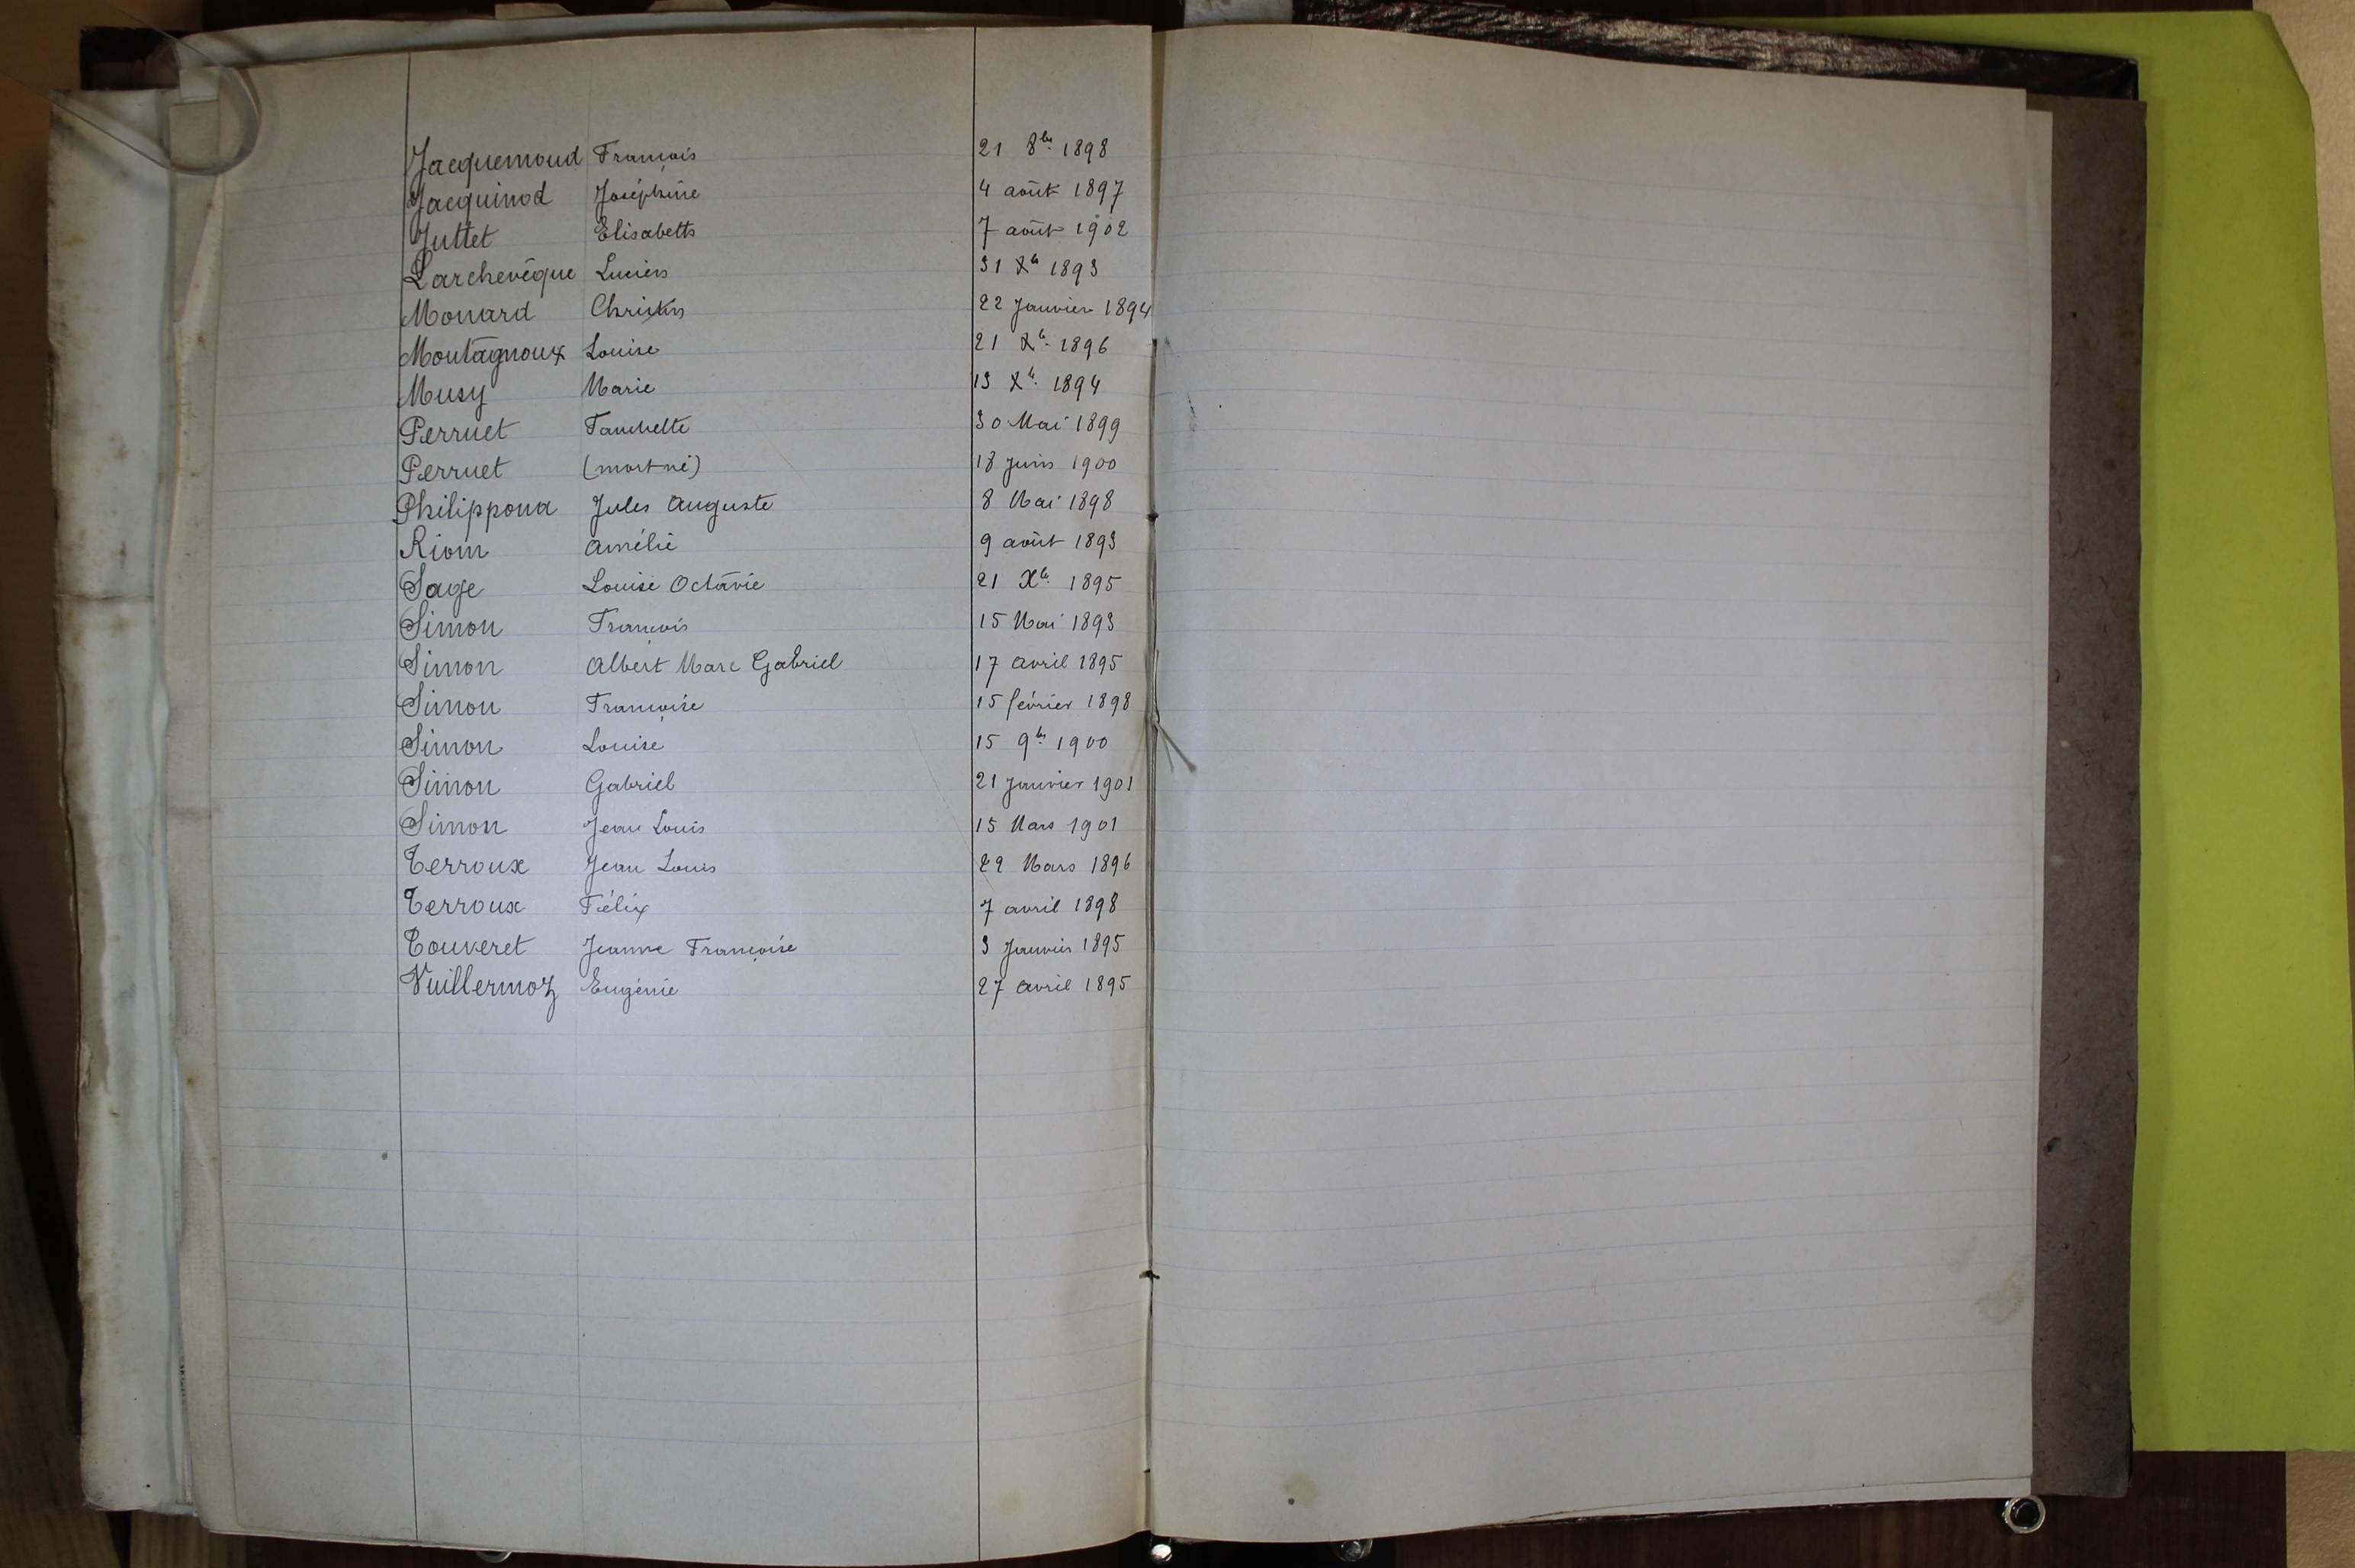 Jacquemoud François 21 8bre 1898
Jacquinod Joséphine 4 août 1897
Juttet Elisabeth 7 août 1902
Larchevêque Lucien 31 Xbre 1893
Monard 22 Janvier 1894
Montagnoux Louise 21 Xbre 1896
Musy Marie 13 Xbre 1894
Perruet Fanchette 30 Mai 1899
Perruet (mort né) 18 Juin 1900
Philippona Jules Auguste 8 Mai 1898
Riom Amélie 9 août 1893
Sage Louise Octavie 21 Xbre 1895
Simon François 15 Mai 1893
Simon Albert Marc Gabriel 17 avril 1895
Simon Françoise 15 février 1898
Simon Louise 15 9bre 1900
Simon Gabriel 21 Janvier 1901
Simon Jean Louis 15 Mars 1901
Terroux Jean Louis 22 Mars 1896
Terroux Félix 7 avril 1898
Touveret Jeanne Françoise 3 Janvier 1895
Vuillermoz Eugénie 27 avril 1895